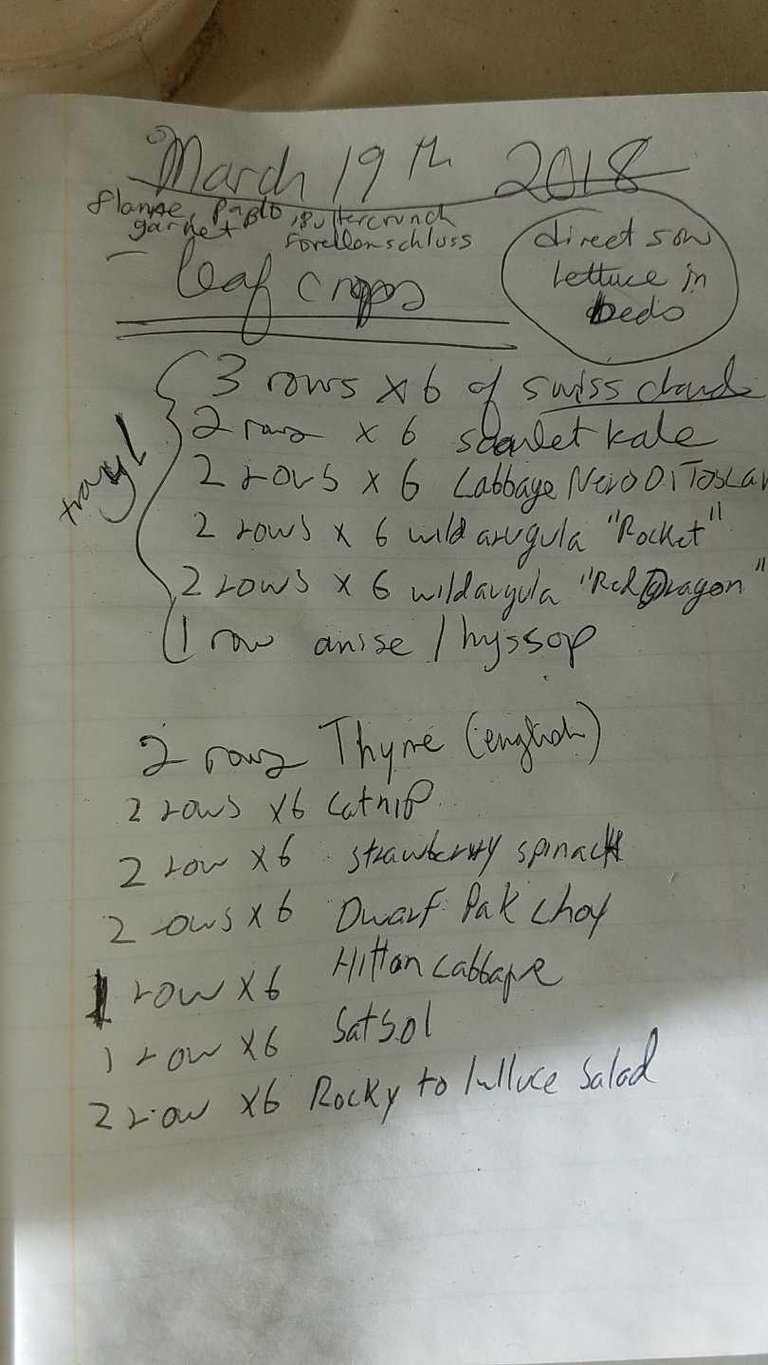 March 19th 2018
Pablo, Buttercrunch
garnet Forellenschluss
direct sow
lettuce in
beds
- leaf crops
tray 1
3 rows x6 of swiss chard
2 rows x 6 scarlet kale
2 rows x 6 Cabbage Nero Di Toscan
2 rows x 6 wild arugula "Rocket"
2 rows x 6 wild arugula "Red Dragon"
1 row anise / hyssop
2 rows Thyme (english)
2 rows x6 catnip
2 row x6 strawberry spinach
2 rows x6 Dwarf Pak choy
1 row x6 Hilton cabbage
1 row x6
2 row x6 Rocky to lettuce salad